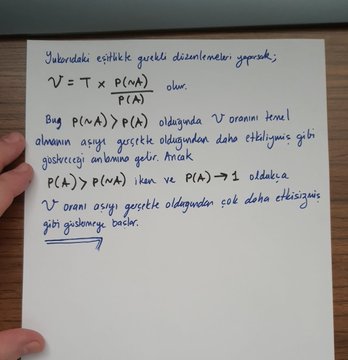 Yukarıdaki eşitlikte gerekli düzenlemeleri yaparsak;
V = T × P(~A) / P(A) olur.
Bu, P(~A) > P(A) olduğunda V oranını temel
almanın aşıyı gerçekte olduğundan daha etkiliymiş gibi
göstereceği anlamına gelir. Ancak
P(A) > P(~A) iken ve P(A) → 1 oldukça
V oranı aşıyı gerçekte olduğundan çok daha etkisizmiş
gibi göstermeye başlar.